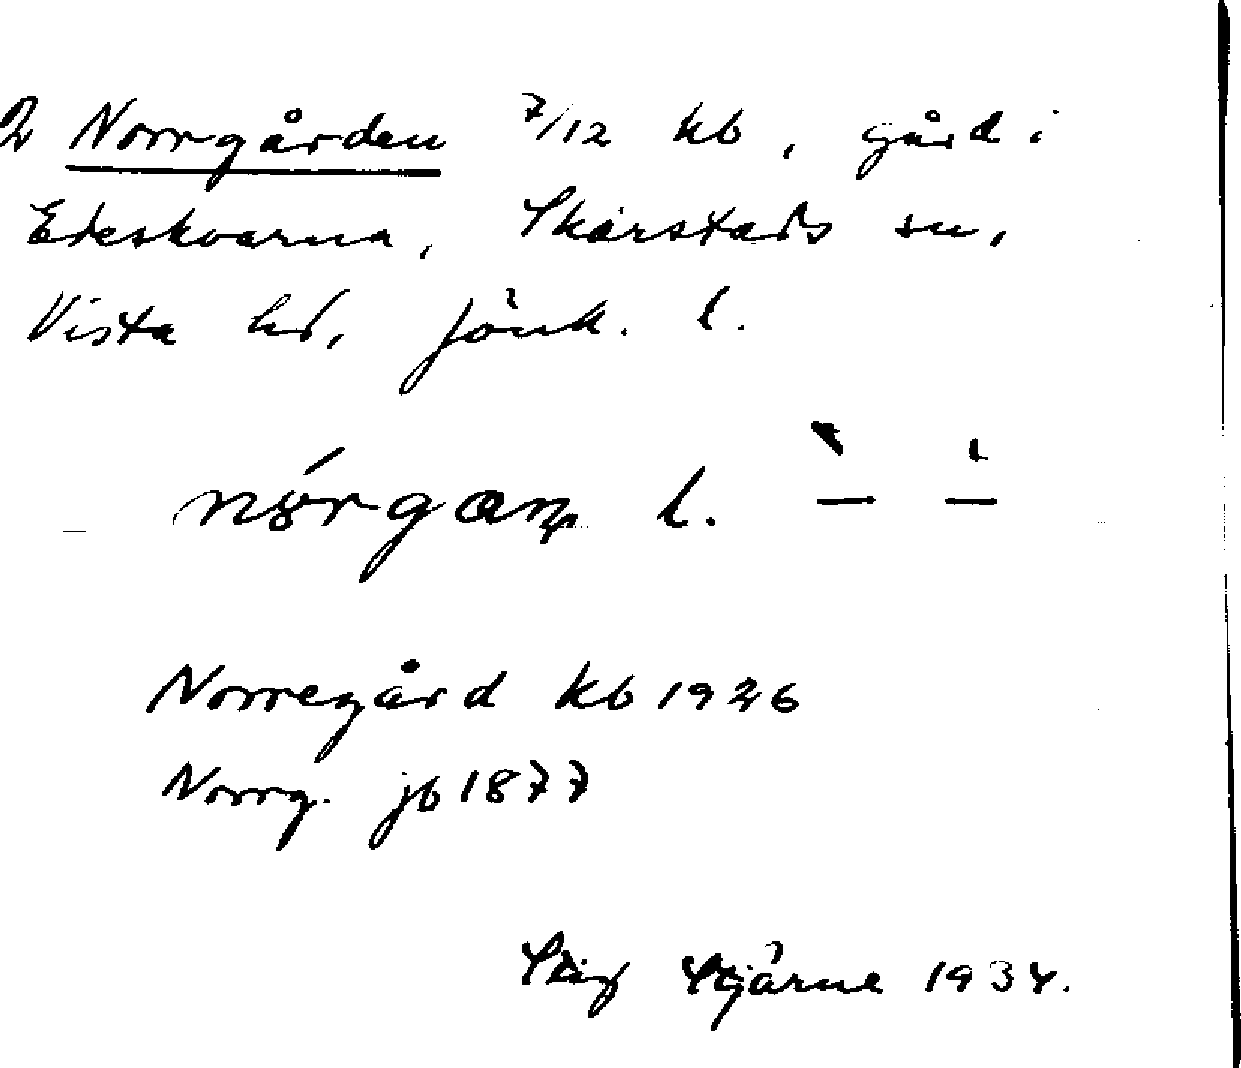 2 Norrgården 7/12 kb, gård i
Edeskvarna, Skärstads sn,
Vista hd, Jönk. l.
l. ̀— ̀—
Norregård kb 1926
Norrg. jb 1877
Stig Stjärne 1934.